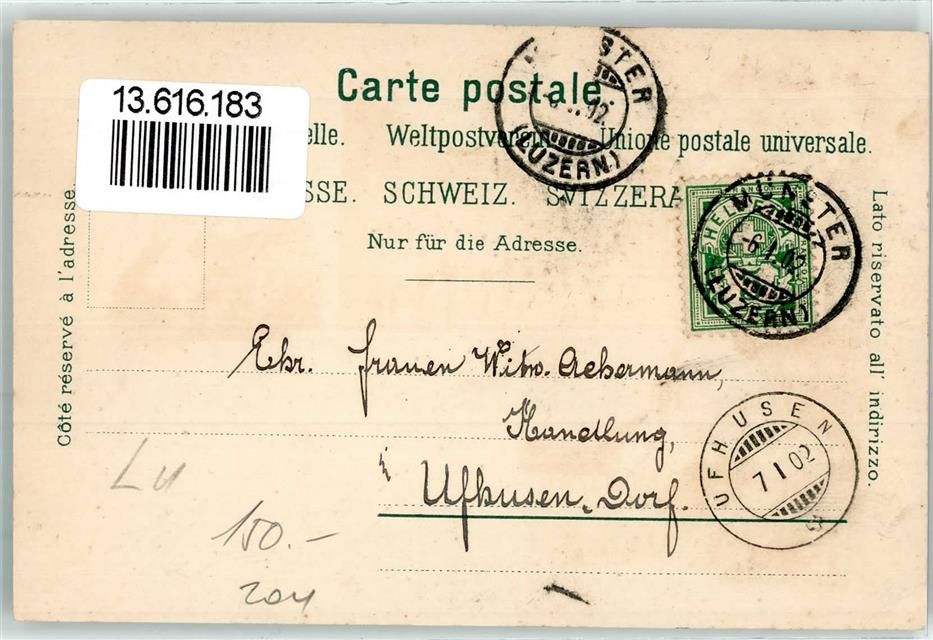 13.616.183
Carte postale.
elle. Weltpostverein. Unione postale universale.
SSE. SCHWEIZ. SVIZZERA
Nur für die Adresse.
Côté réservé à l'adresse.
Lato riservato all' indirizzo.
STER
(LUZERN)
MÜNSTER
-6.I.02
(LUZERN)
HELV
Ehr. Frauen Witw. Achermann,
Handlung,
Ufhusen, Dorf.
UFHUSEN
7 I 02
LU
150.-
204